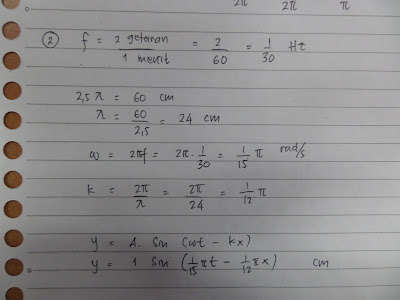 2π 2π π
② f = 2 getaran / 1 menit = 2/60 = 1/30 Hz
2,5 λ = 60 cm
λ = 60/2,5 = 24 cm
ω = 2πf = 2π . 1/30 = 1/15 π rad/s
k = 2π/λ = 2π/24 = 1/12 π
y = A. sin (ωt - kx)
y = 1 sin (1/15 πt - 1/12 πx) cm